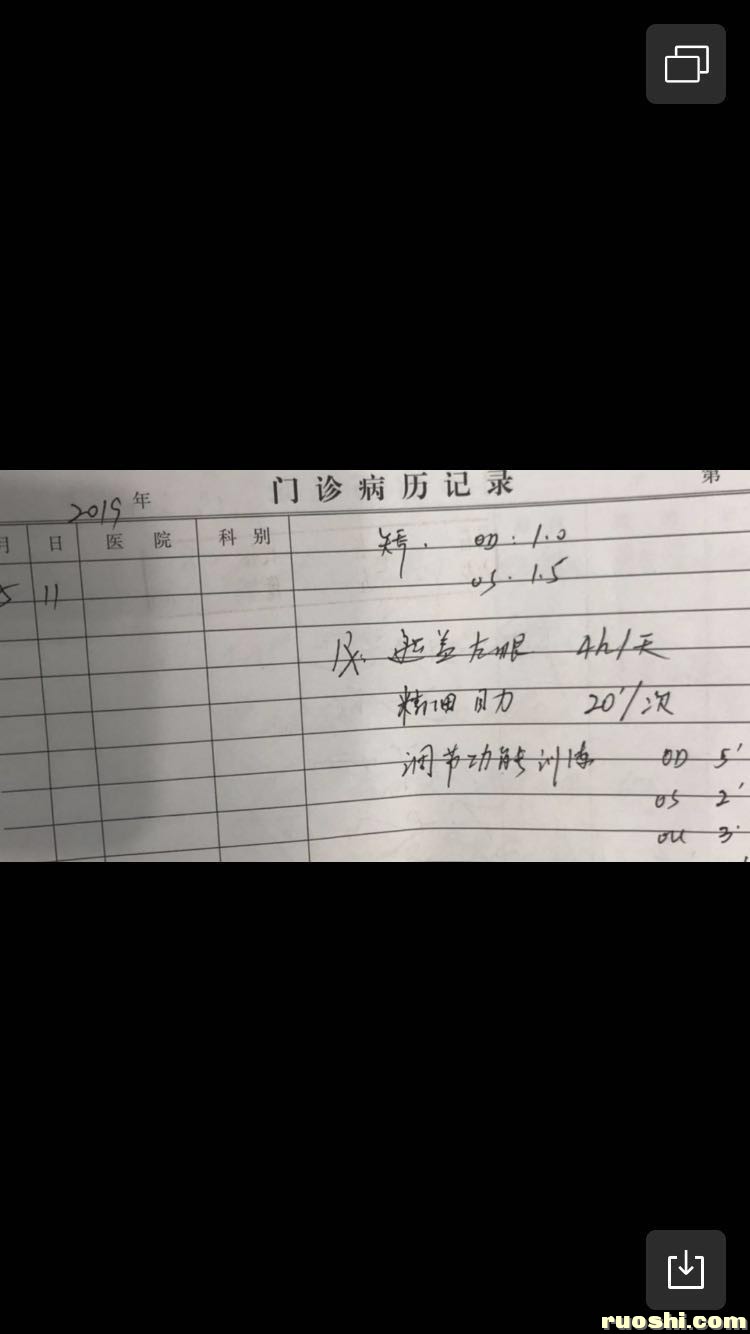 门诊病历记录 第
2019 年
月 日 医院 科别
5 11
矫. OD: 1.0
OS. 1.5
Rx. 遮盖左眼 4h/天
精细目力 20'/次
调节功能训练 OD 5'
OS 2'
OU 3'
ruoshi.com